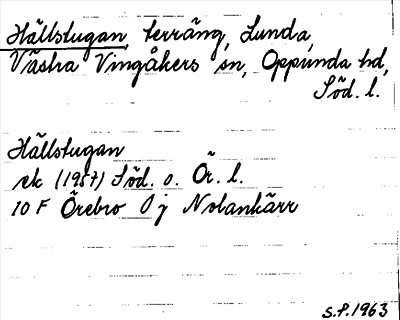 Hällstugan, terräng, Lunda,
Västra Vingåkers sn, Oppunda hd,
Söd. l.
Hällstugan
ek (1957) Söd. o. Ör. l.
10 F Örebro O j Nolankärr
S.P. 1963